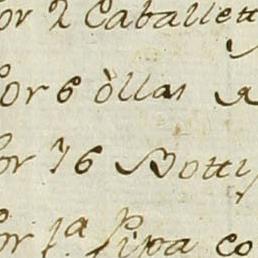 or 2 Caballett
or 6 òllas
or 76 Botti
or 1a Pipa co